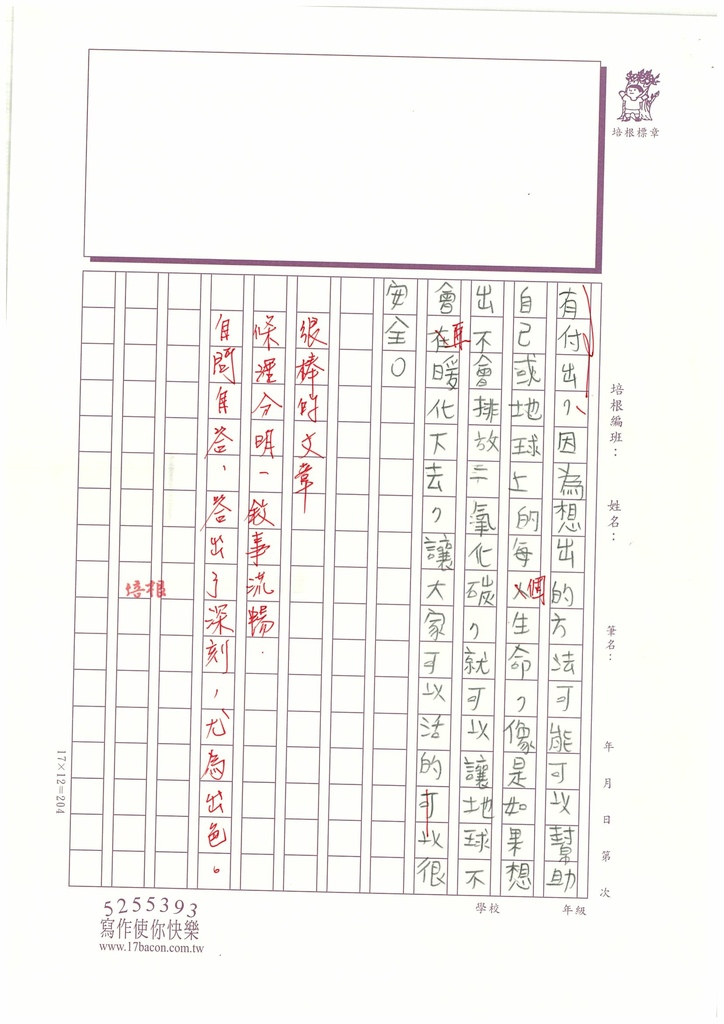 培根標章
培根編班：
姓名：
筆名：
年 月 日 第 次
有付出，因為想出的方法可能可以幫助
自己或地球上的每個生命，像是如果想
出不會排放二氧化碳，就可以讓地球不
會再暖化下去，讓大家可以活的可以很
安全。
很棒的文章
條理分明，敘事流暢．
自問自答、答出了深刻，尤為出色。
培根
17×12=204
學校
年級
5255393
寫作使你快樂
www.17bacon.com.tw